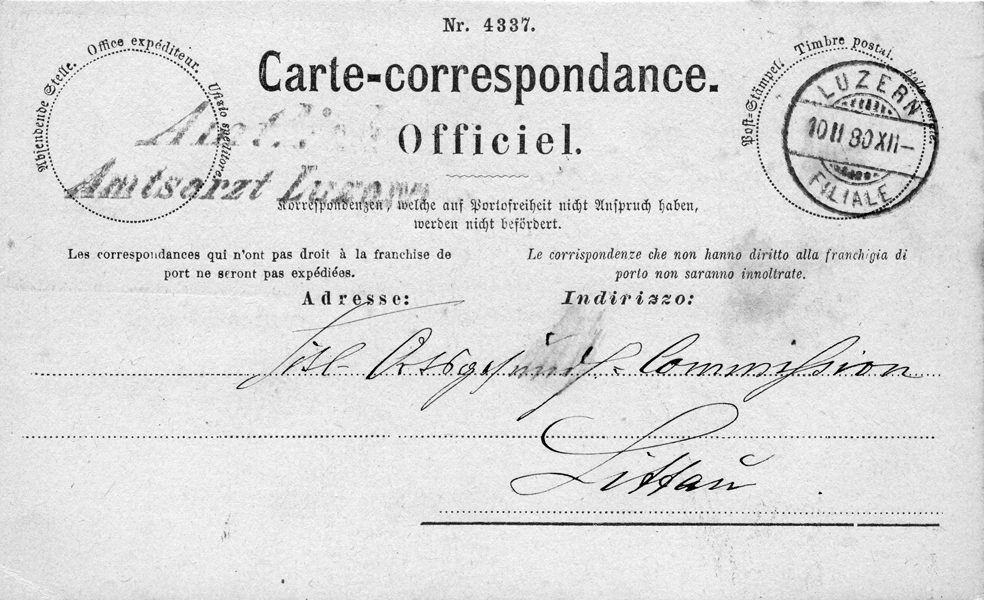 Nr. 4337.
Carte-correspondance.
Officiel.
Absendende Stelle. Office expéditeur. Ufizio speditore.
Post-Stämpel. Timbre postal.
LUZERN
10 II 80 XII–
FILIALE
Amtlich
Amtsarzt Luzern
Korrespondenzen, welche auf Portofreiheit nicht Anspruch haben,
werden nicht befördert.
Les correspondances qui n'ont pas droit à la franchise de
port ne seront pas expédiées.
Le corrispondenze che non hanno diritto alla franchigia di
porto non saranno innoltrate.
Adresse:
Indirizzo:
Titl. Ortsgesundh. Commission
Littau